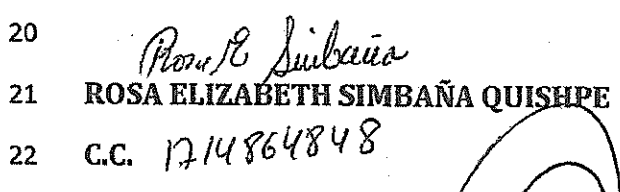 20 Rosa E Simbaña
21 ROSA ELIZABETH SIMBAÑA QUISHPE
22 C.C. 1714864848